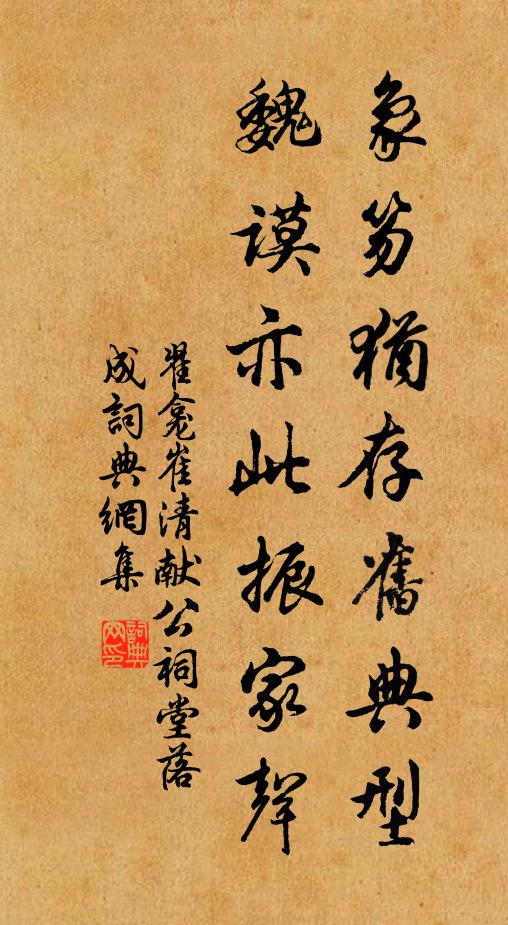 象笏猶存舊典型
魏謨亦此振家聲
翟龕崔清献公祠堂落
成詞典網集
詞典
网印